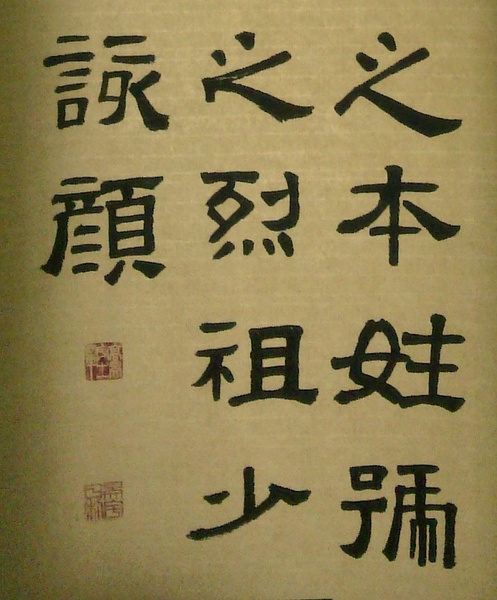 之本姓號
之烈祖少
詠顔